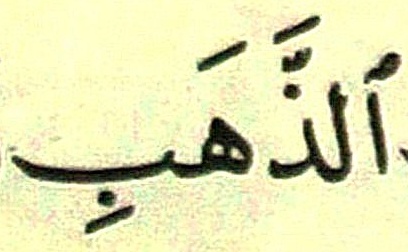 ٱلذَّهَبِ